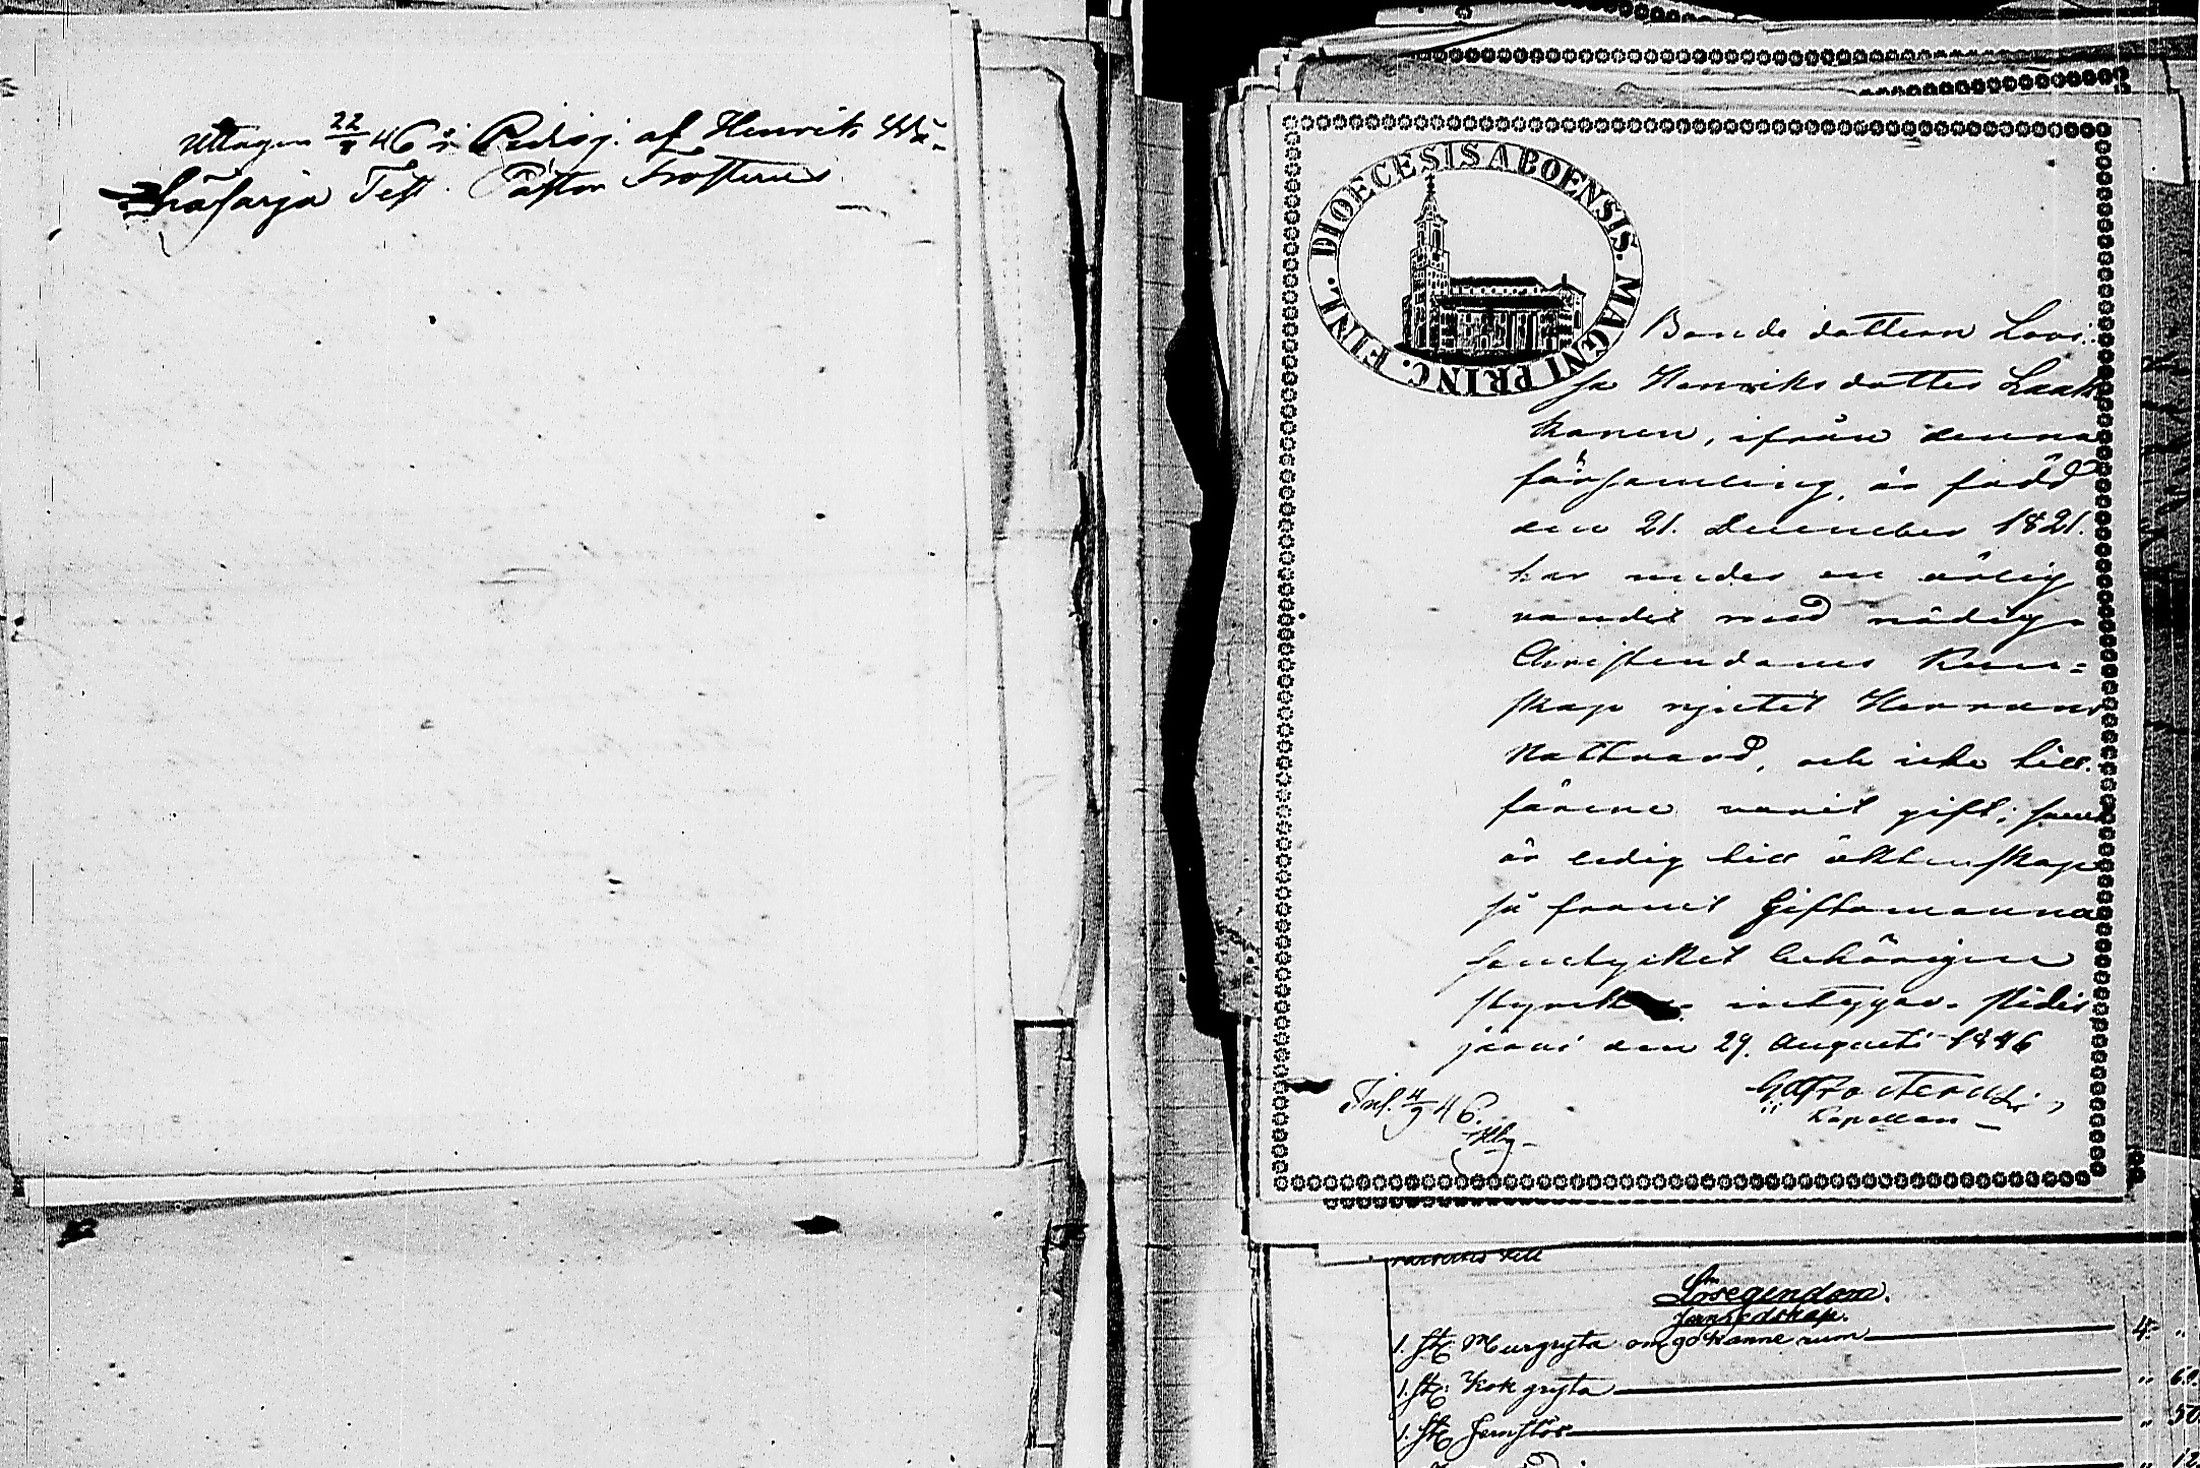 Uttagen 22/8 46 i Pedisj. af Henrik Wä-
häsarja Test. Pastor Frosterus
DIOECESIS ABOENSIS. MAGNI PRINC. FINL.
Bonde dottern Lovi-
sa Henriksdotter Laak
konen, ifrån denna
församling, är född
den 21. December 1821.
har under en ärlig
vandel med nödig
Christendoms Kun=
skap njutit Herrans
Nattvard, och icke till-
förene varit gift; samt
är ledig till äktenskap
så framt Giftomanna
samtycket behörigen
styrkt intygas. Pidis
järvi den 29. Augusti 1846
Frosterus,
Kapellan
Inl. 4/9 46.
Lösegendom.
Jernredskap.
1. st. Murgryta om 90 kanne rum 4.
1. st. Kok gryta " 60.
1. st. Jernstör " 50